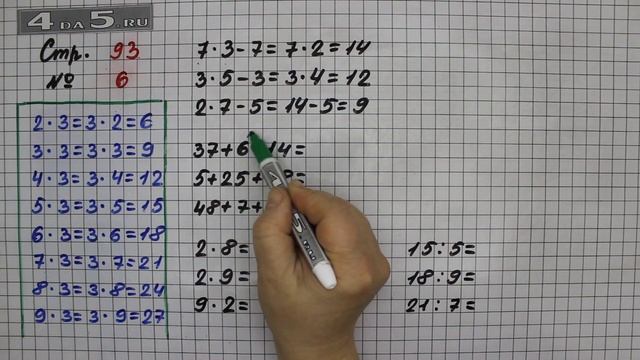 4DA5.RU
Стр. 93
№ 6
2·3=3·2=6
3·3=3·3=9
4·3=3·4=12
5·3=3·5=15
6·3=3·6=18
7·3=3·7=21
8·3=3·8=24
9·3=3·9=27
7·3-7=7·2=14
3·5-3=3·4=12
2·7-5=14-5=9
37+6 14=
5+25+ 8=
48+7+
2·8=
2·9=
9·2=
15:5=
18:9=
21:7=